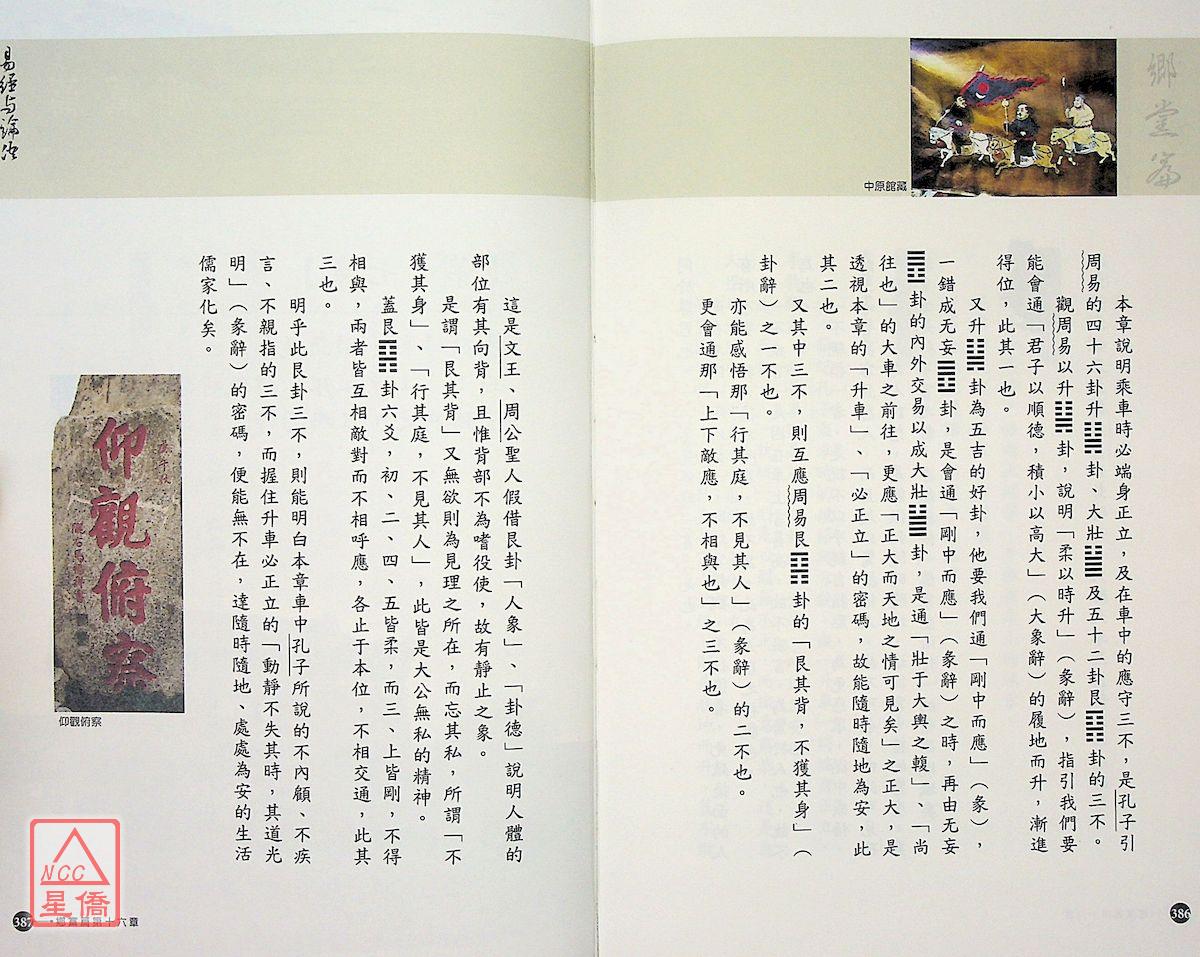 鄉黨篇
中原館藏
本章說明乘車時必端身正立，及在車中的應守三不，是孔子引
周易的四十六卦升䷭卦、大壯䷡及五十二卦艮䷳卦的三不。
觀周易以升䷭卦，說明「柔以時升」（彖辭），指引我們要
能會通「君子以順德，積小以高大」（大象辭）的履地而升，漸進
得位，此其一也。
又升䷭卦為五吉的好卦，他要我們通「剛中而應」（彖），
一錯成无妄䷘卦，是會通「剛中而應」（彖辭）之時，再由无妄
䷘卦的內外交易以成大壯䷡卦，是通「壯于大輿之輹」、「尚
往也」的大車之前往，更應「正大而天地之情可見矣」之正大，是
透視本章的「升車」、「必正立」的密碼，故能隨時隨地為安，此
其二也。
又其中三不，則互應周易艮䷳卦的「艮其背，不獲其身」（
卦辭）之一不也。
亦能感悟那「行其庭，不見其人」（彖辭）的二不也。
更會通那「上下敵應，不相與也」之三不也。
386
易經與論語
這是文王、周公聖人假借艮卦「人象」、「卦德」說明人體的
部位有其向背，且惟背部不為嗜役使，故有靜止之象。
是謂「艮其背」又無欲則為見理之所在，而忘其私，所謂「不
獲其身」、「行其庭，不見其人」，此皆是大公無私的精神。
蓋艮䷳卦六爻，初、二、四、五皆柔，而三、上皆剛，不得
相與，兩者皆互相敵對而不相呼應，各止于本位，不相交通，此其
三也。
明乎此艮卦三不，則能明白本章車中孔子所說的不內顧、不疾
言、不親指的三不，而握住升車必正立的「動靜不失其時，其道光
明」（彖辭）的密碼，便能無不在，達隨時隨地、處處為安的生活
儒家化矣。
仰觀俯察
仰觀俯察
NCC
星僑
387
鄉黨篇第十六章